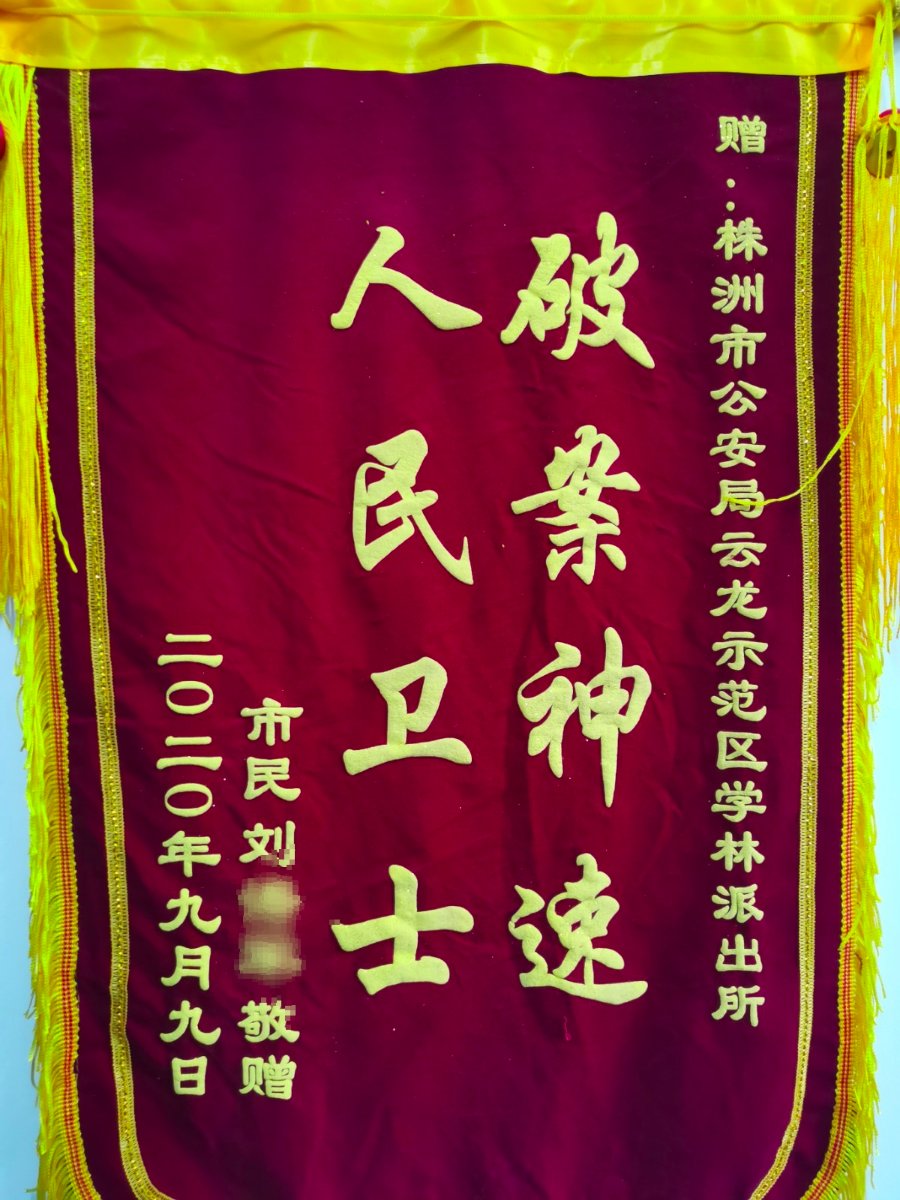 赠：株洲市公安局云龙示范区学林派出所
破案神速
人民卫士
市民刘 敬赠
二〇二〇年九月九日